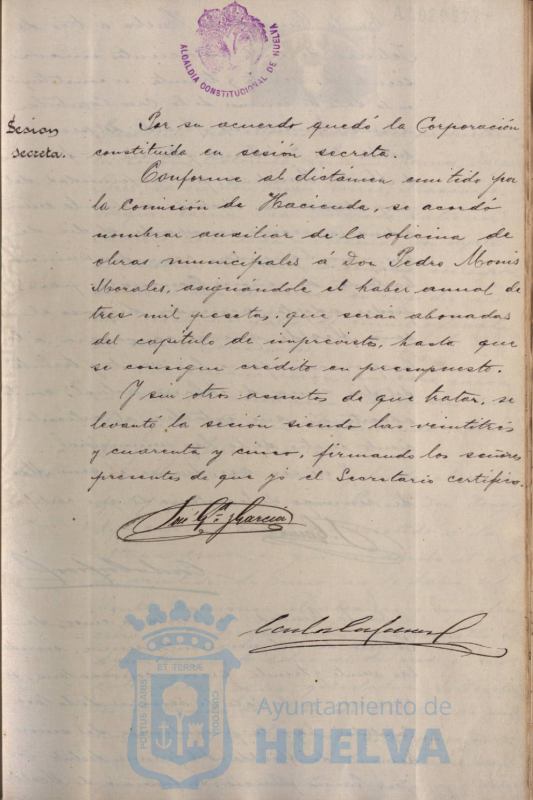 ALCALDIA CONSTITUCIONAL DE HUELVA
Sesion
secreta.
Por su acuerdo quedó la Corporación
constituida en sesión secreta.
Conforme al dictámen emitido por
la Comisión de Hacienda, se acordó
nombrar auxiliar de la oficina de
obras municipales á Don Pedro Monis
Morales, asignándole el haber anual de
tres mil pesetas, que serán abonadas
del capitulo de imprevistos, hasta que
se consigue crédito en presupuesto.
Y sin otros asuntos de que tratar, se
levantó la seción siendo las veintitres
y cuarenta y cinco, firmando los señores
presentes de que yó el Secretario certifico.
José Gª Garcia
PORTUS MARIS ET TERRÆ CUSTODIA
Ayuntamiento de
HUELVA